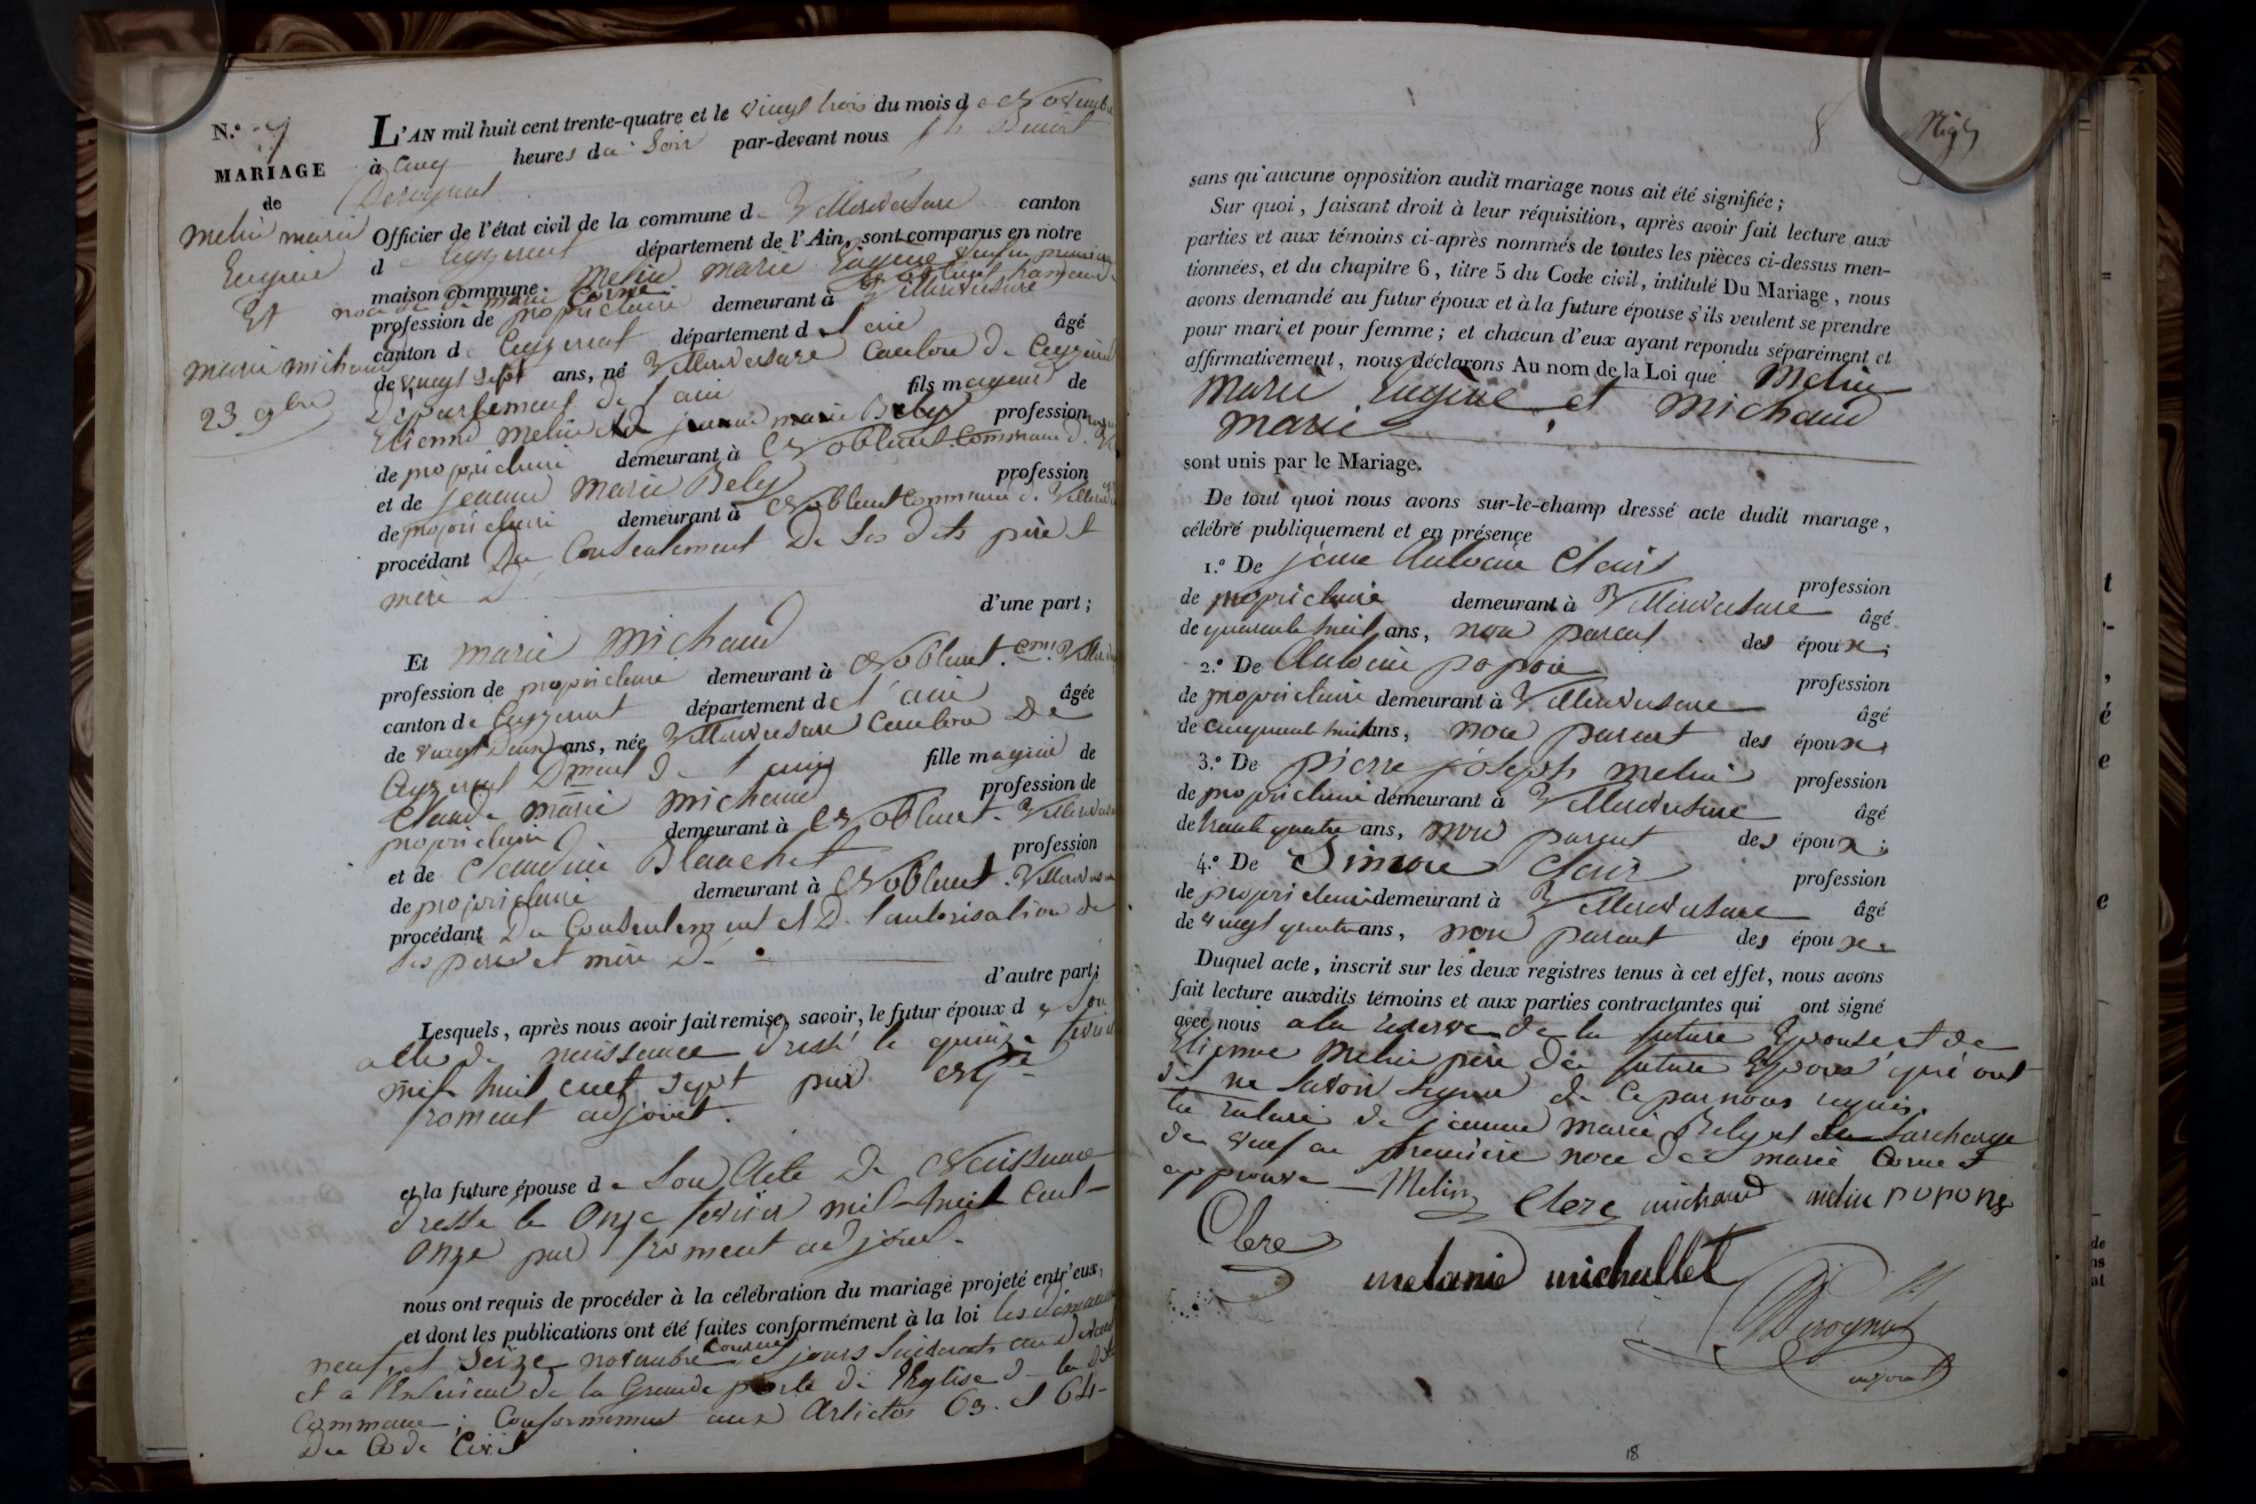 N.° 7
MARIAGE
de
Melin marie
Eugène
Et
marie michaud
23 9bre
L'AN mil huit cent trente-quatre et le vingt trois du mois de Novembre
à cinq heures du Soir par-devant nous
Derognat
Officier de l'état civil de la commune d Villereversure canton
d Ceyzeriat département de l'Ain, sont comparus en notre
maison commune. Melin marie Eugène veuf en première
noce de marie Cornet Noblent hameau
profession de propriétaire demeurant à Villereversure
canton de Ceyzeriat département de l'ain âgé
de vingt sept ans, né Villereversure Canton de Ceyzeriat
Département de l'ain fils majeur de
Etienne Melin et de jeanne marie Bely profession
de propriétaire demeurant à Noblent Commune d
et de jeanne Marie Bely profession
de propriétaire demeurant à Noblent Commune d. Villerev
procédant Du Consentement De Ses Dits père et
mère
d'une part;
Et marie michaud
profession de propriétaire demeurant à Noblent. Cmne Viller
canton de Ceyzeriat département de l'ain âgée
de vingt Deux ans, née Villereversure Canton De
Ceyzeriat Dment de l'ain fille majeure de
Claude marie michaud profession de
propriétaire demeurant à Noblent. Villerevers
et de Claudine Blanchet profession
de propriétaire demeurant à Noblent. Villerevers
procédant Du Consentement et D. l'autorisation de
Ses père et mère
d'autre part;
Lesquels, après nous avoir fait remise, savoir, le futur époux de Son
acte de naissance Dressé le quinze
mil huit cent sept par
froment adjoint.
et la future épouse de Son Acte De Naissance
Dressé le Onze fevrier mil-huit Cent-
Onze par froment adjoint.
nous ont requis de procéder à la célébration du mariage projeté entr'eux,
et dont les publications ont été faites conformément à la loi les dimanches
neuf et Seize novembre courant jours Suivants au devant
et a l'Exterieur de la Grande porte de l'Eglise d la dite
Commune; Conformément aux Articles 63. et 64-
Du Code Civil
8
sans qu'aucune opposition audit mariage nous ait été signifiée;
Sur quoi, faisant droit à leur réquisition, après avoir fait lecture aux
parties et aux témoins ci-après nommés de toutes les pièces ci-dessus men-
tionnées, et du chapitre 6, titre 5 du Code civil, intitulé Du Mariage, nous
avons demandé au futur époux et à la future épouse s'ils veulent se prendre
pour mari et pour femme; et chacun d'eux ayant répondu séparément et
affirmativement, nous déclarons Au nom de la Loi que Melin
Marie Eugène et Michaud
marie
sont unis par le Mariage.
De tout quoi nous avons sur-le-champ dressé acte dudit mariage,
célébré publiquement et en présence
1.° De jean Antoine Clair profession
de propriétaire demeurant à Villereversure âgé
de quarante huit ans, non parent des époux;
2.° De Antoine popon profession
de propriétaire demeurant à Villereversure âgé
de cinquante huit ans, non parent des époux;
3.° De pierre joseph melin profession
de propriétaire demeurant à Villereversure âgé
de trente quatre ans, non parent des époux;
4.° De Simon Clair profession
de propriétaire demeurant à Villereversure âgé
de vingt quatre ans, non parent des époux.
Duquel acte, inscrit sur les deux registres tenus à cet effet, nous avons
fait lecture auxdits témoins et aux parties contractantes qui ont signé
avec nous a la reserve de la future Epouse et de
Etienne Melin père du future Epoux qui ont
dit ne Savoir Signer de Ce par nous requis.
la rature de jeanne marie Bely et la Surcharge
de veuf en première noce de marie Cornet
approuvé Melin Clere michaud melin popons
Clere
melanie michallet
Derognat
adjoint
18